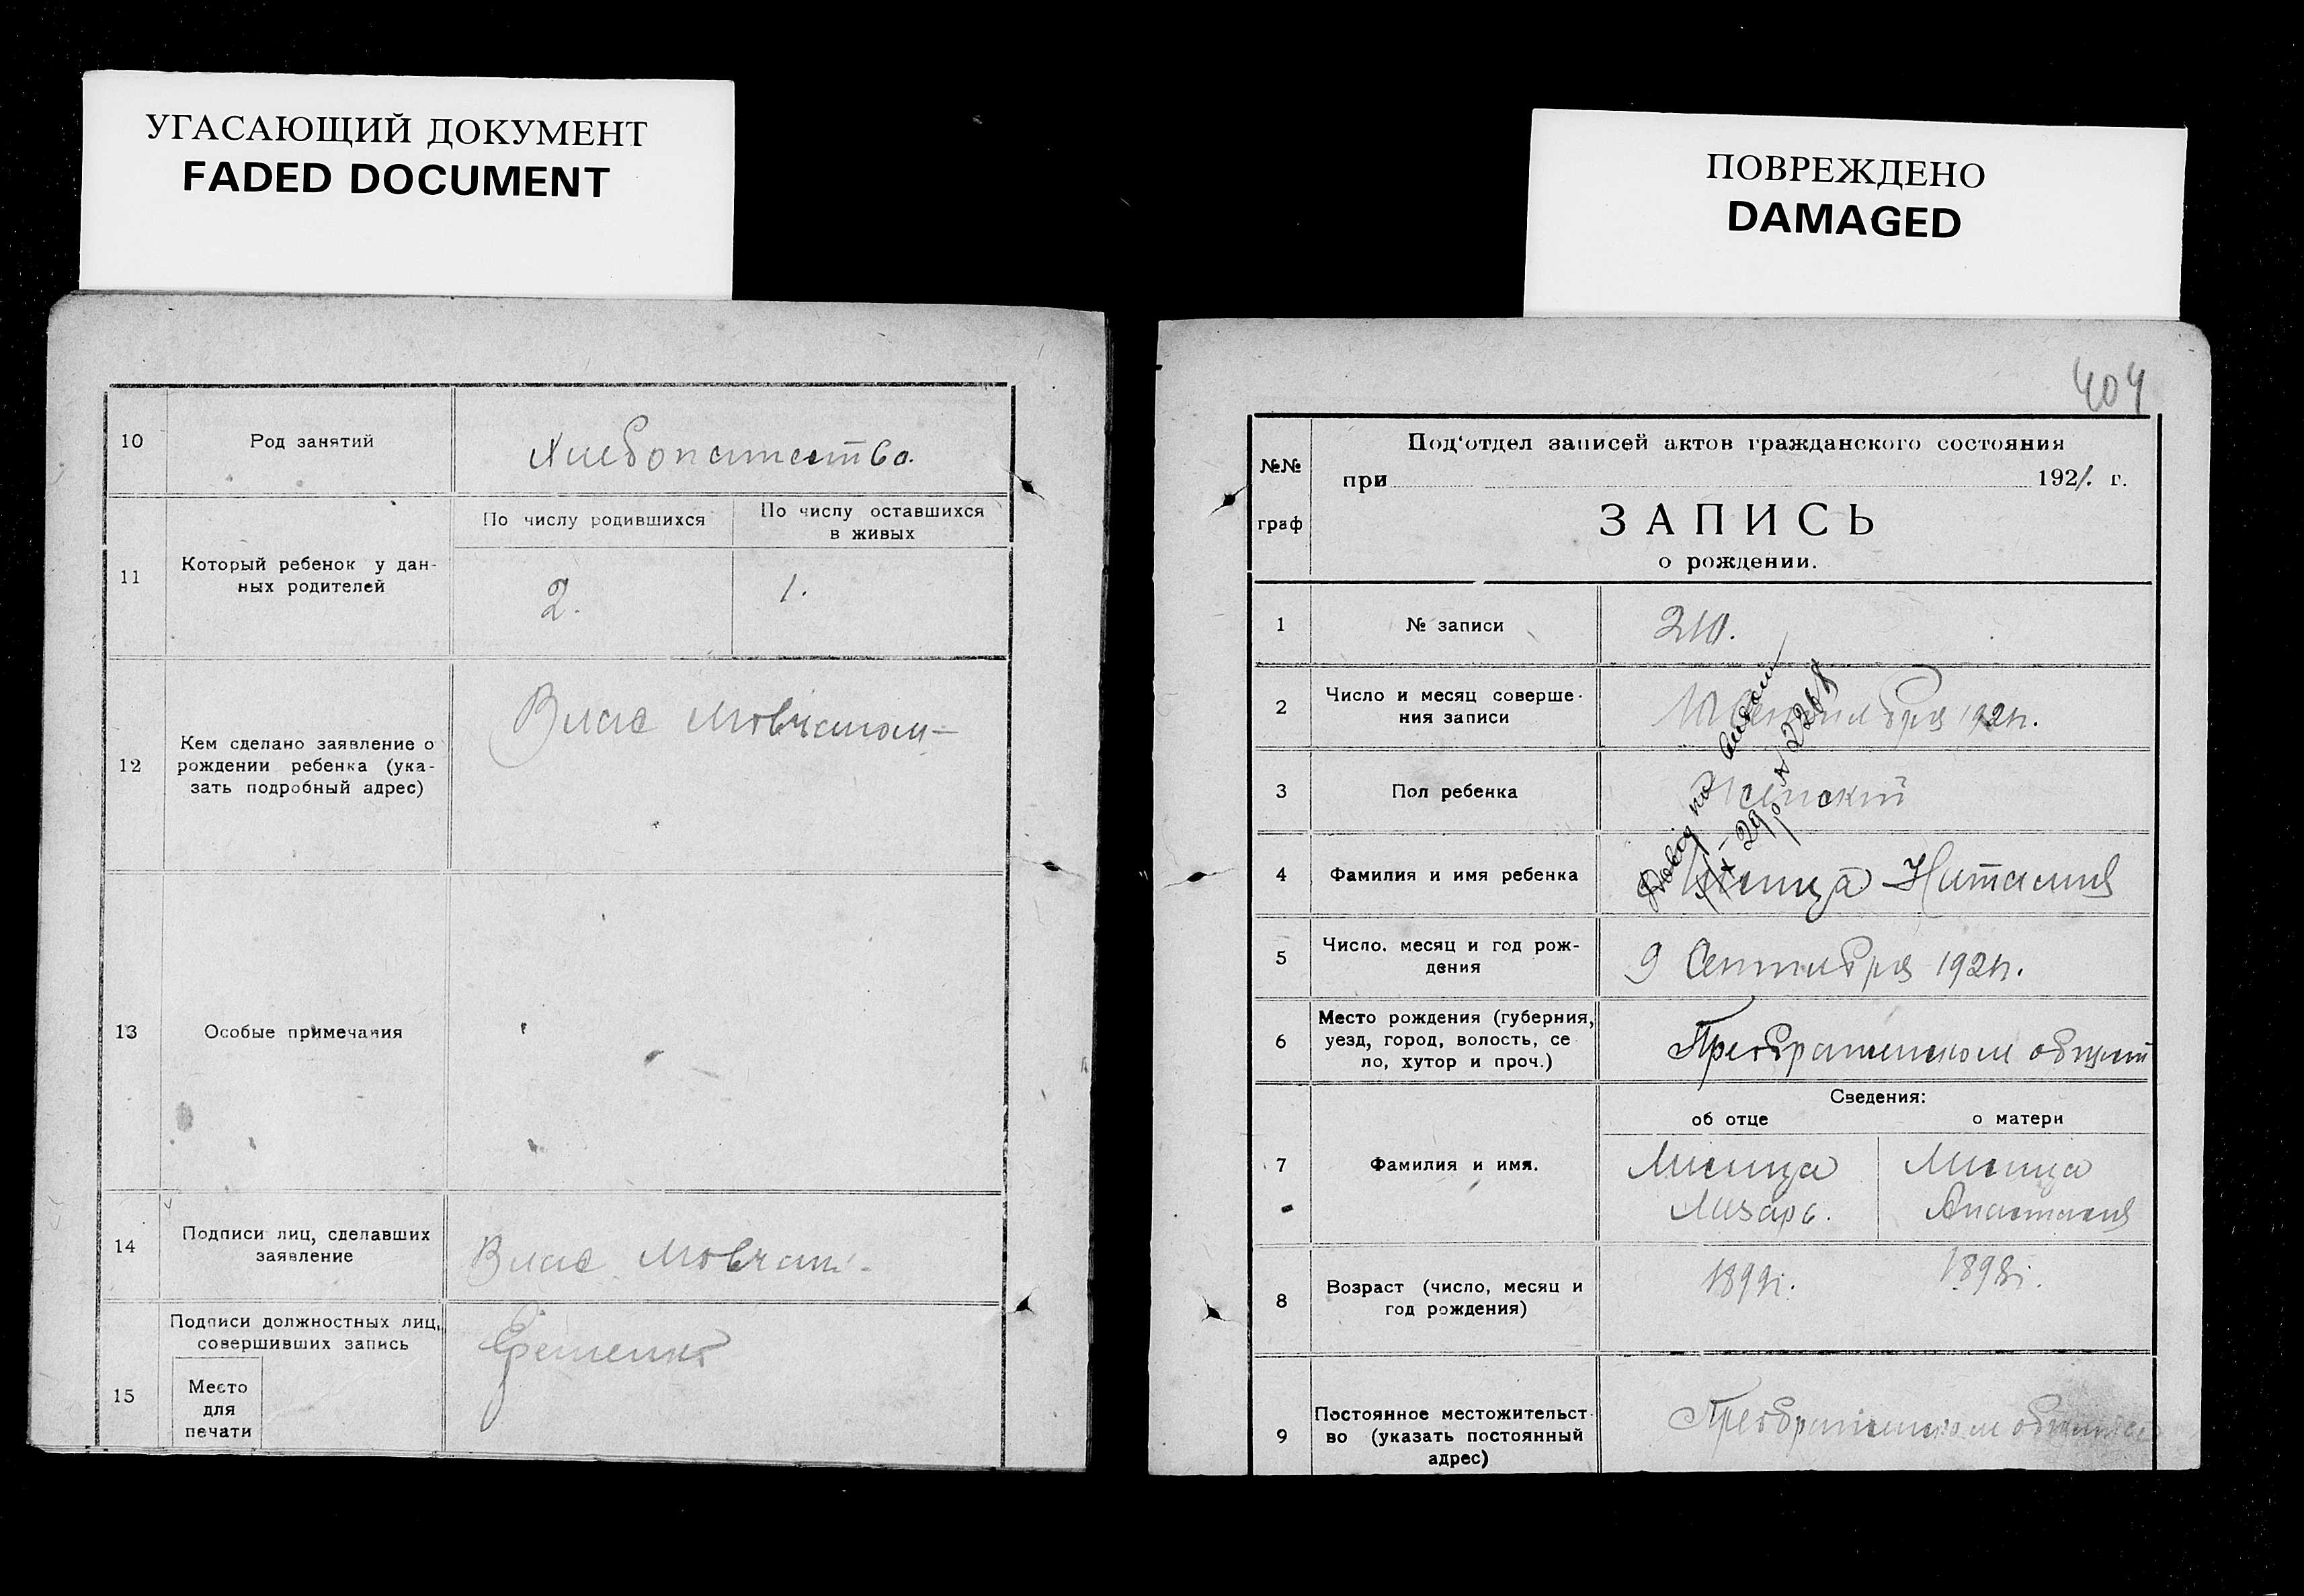 УГАСАЮЩИЙ ДОКУМЕНТ
FADED DOCUMENT
10
Род занятий
Хлебопашество.
11
Который ребенок у дан-
ных родителей
По числу родившихся
По числу оставшихся
в живых
2.
1.
12
Кем сделано заявление о
рождении ребенка (ука-
зать подробный адрес)
Влас Мовчан
13
Особые примечания
14
Подписи лиц, сделавших
заявление
Влас Мовчан
Подписи должностных лиц,
совершивших запись
15
Место
для
печати
Еременко
ПОВРЕЖДЕНО
DAMAGED
404
№№
граф
Под'отдел записей актов гражданского состояния
при 1921. г.
ЗАПИСЬ
о рождении.
1
№ записи
210.
2
Число и месяц соверше-
ния записи
10 Сентября 1921г.
3
Пол ребенка
Женский
4
Фамилия и имя ребенка
Наталия
5
Число, месяц и год рож-
дения
9 Сентября 1921г.
6
Место рождения (губерния,
уезд, город, волость, се
ло, хутор и проч.)
Преображенском общест
Сведения:
об отце
о матери
7
Фамилия и имя.
Мисица
Лазарь.
Мисица
Анастасия
8
Возраст (число, месяц и
год рождения)
1898г.
9
Постоянное местожительст-
во (указать постоянный
адрес)
Преображенском